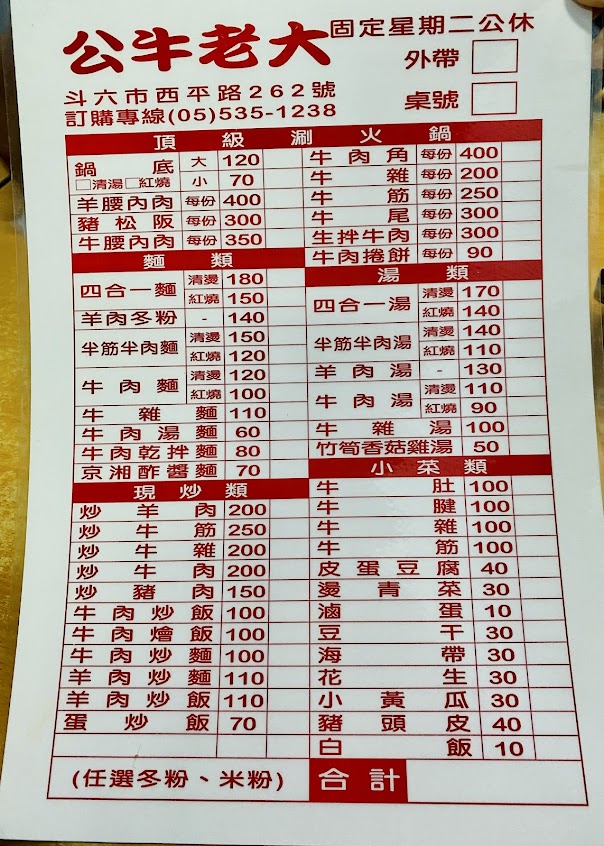 公牛老大
固定星期二公休
外帶
桌號
斗六市西平路262號
訂購專線(05)535-1238
頂級涮火鍋
鍋底 大 120
□清湯□紅燒 小 70
羊腰內肉 每份 400
豬松阪 每份 300
牛腰內肉 每份 350
牛肉角 每份 400
牛雜 每份 200
牛筋 每份 250
牛尾 每份 300
生拌牛肉 每份 300
牛肉捲餅 每份 90
麵類
四合一麵 清燙 180
紅燒 150
羊肉冬粉 - 140
半筋半肉麵 清燙 150
紅燒 120
牛肉麵 清燙 120
紅燒 100
牛雜麵 110
牛肉湯麵 60
牛肉乾拌麵 80
京湘酢醬麵 70
湯類
四合一湯 清燙 170
紅燒 140
半筋半肉湯 清燙 140
紅燒 110
羊肉湯 - 130
牛肉湯 清燙 110
紅燒 90
牛雜湯 100
竹筍香菇雞湯 50
現炒類
炒羊肉 200
炒牛筋 250
炒牛雜 200
炒牛肉 200
炒豬肉 150
牛肉炒飯 100
牛肉燴飯 100
牛肉炒麵 100
羊肉炒麵 110
羊肉炒飯 110
蛋炒飯 70
小菜類
牛肚 100
牛腱 100
牛雜 100
牛筋 100
皮蛋豆腐 40
燙青菜 30
滷蛋 10
豆干 30
海帶 30
花生 30
小黃瓜 30
豬頭皮 40
白飯 10
(任選冬粉、米粉)
合計